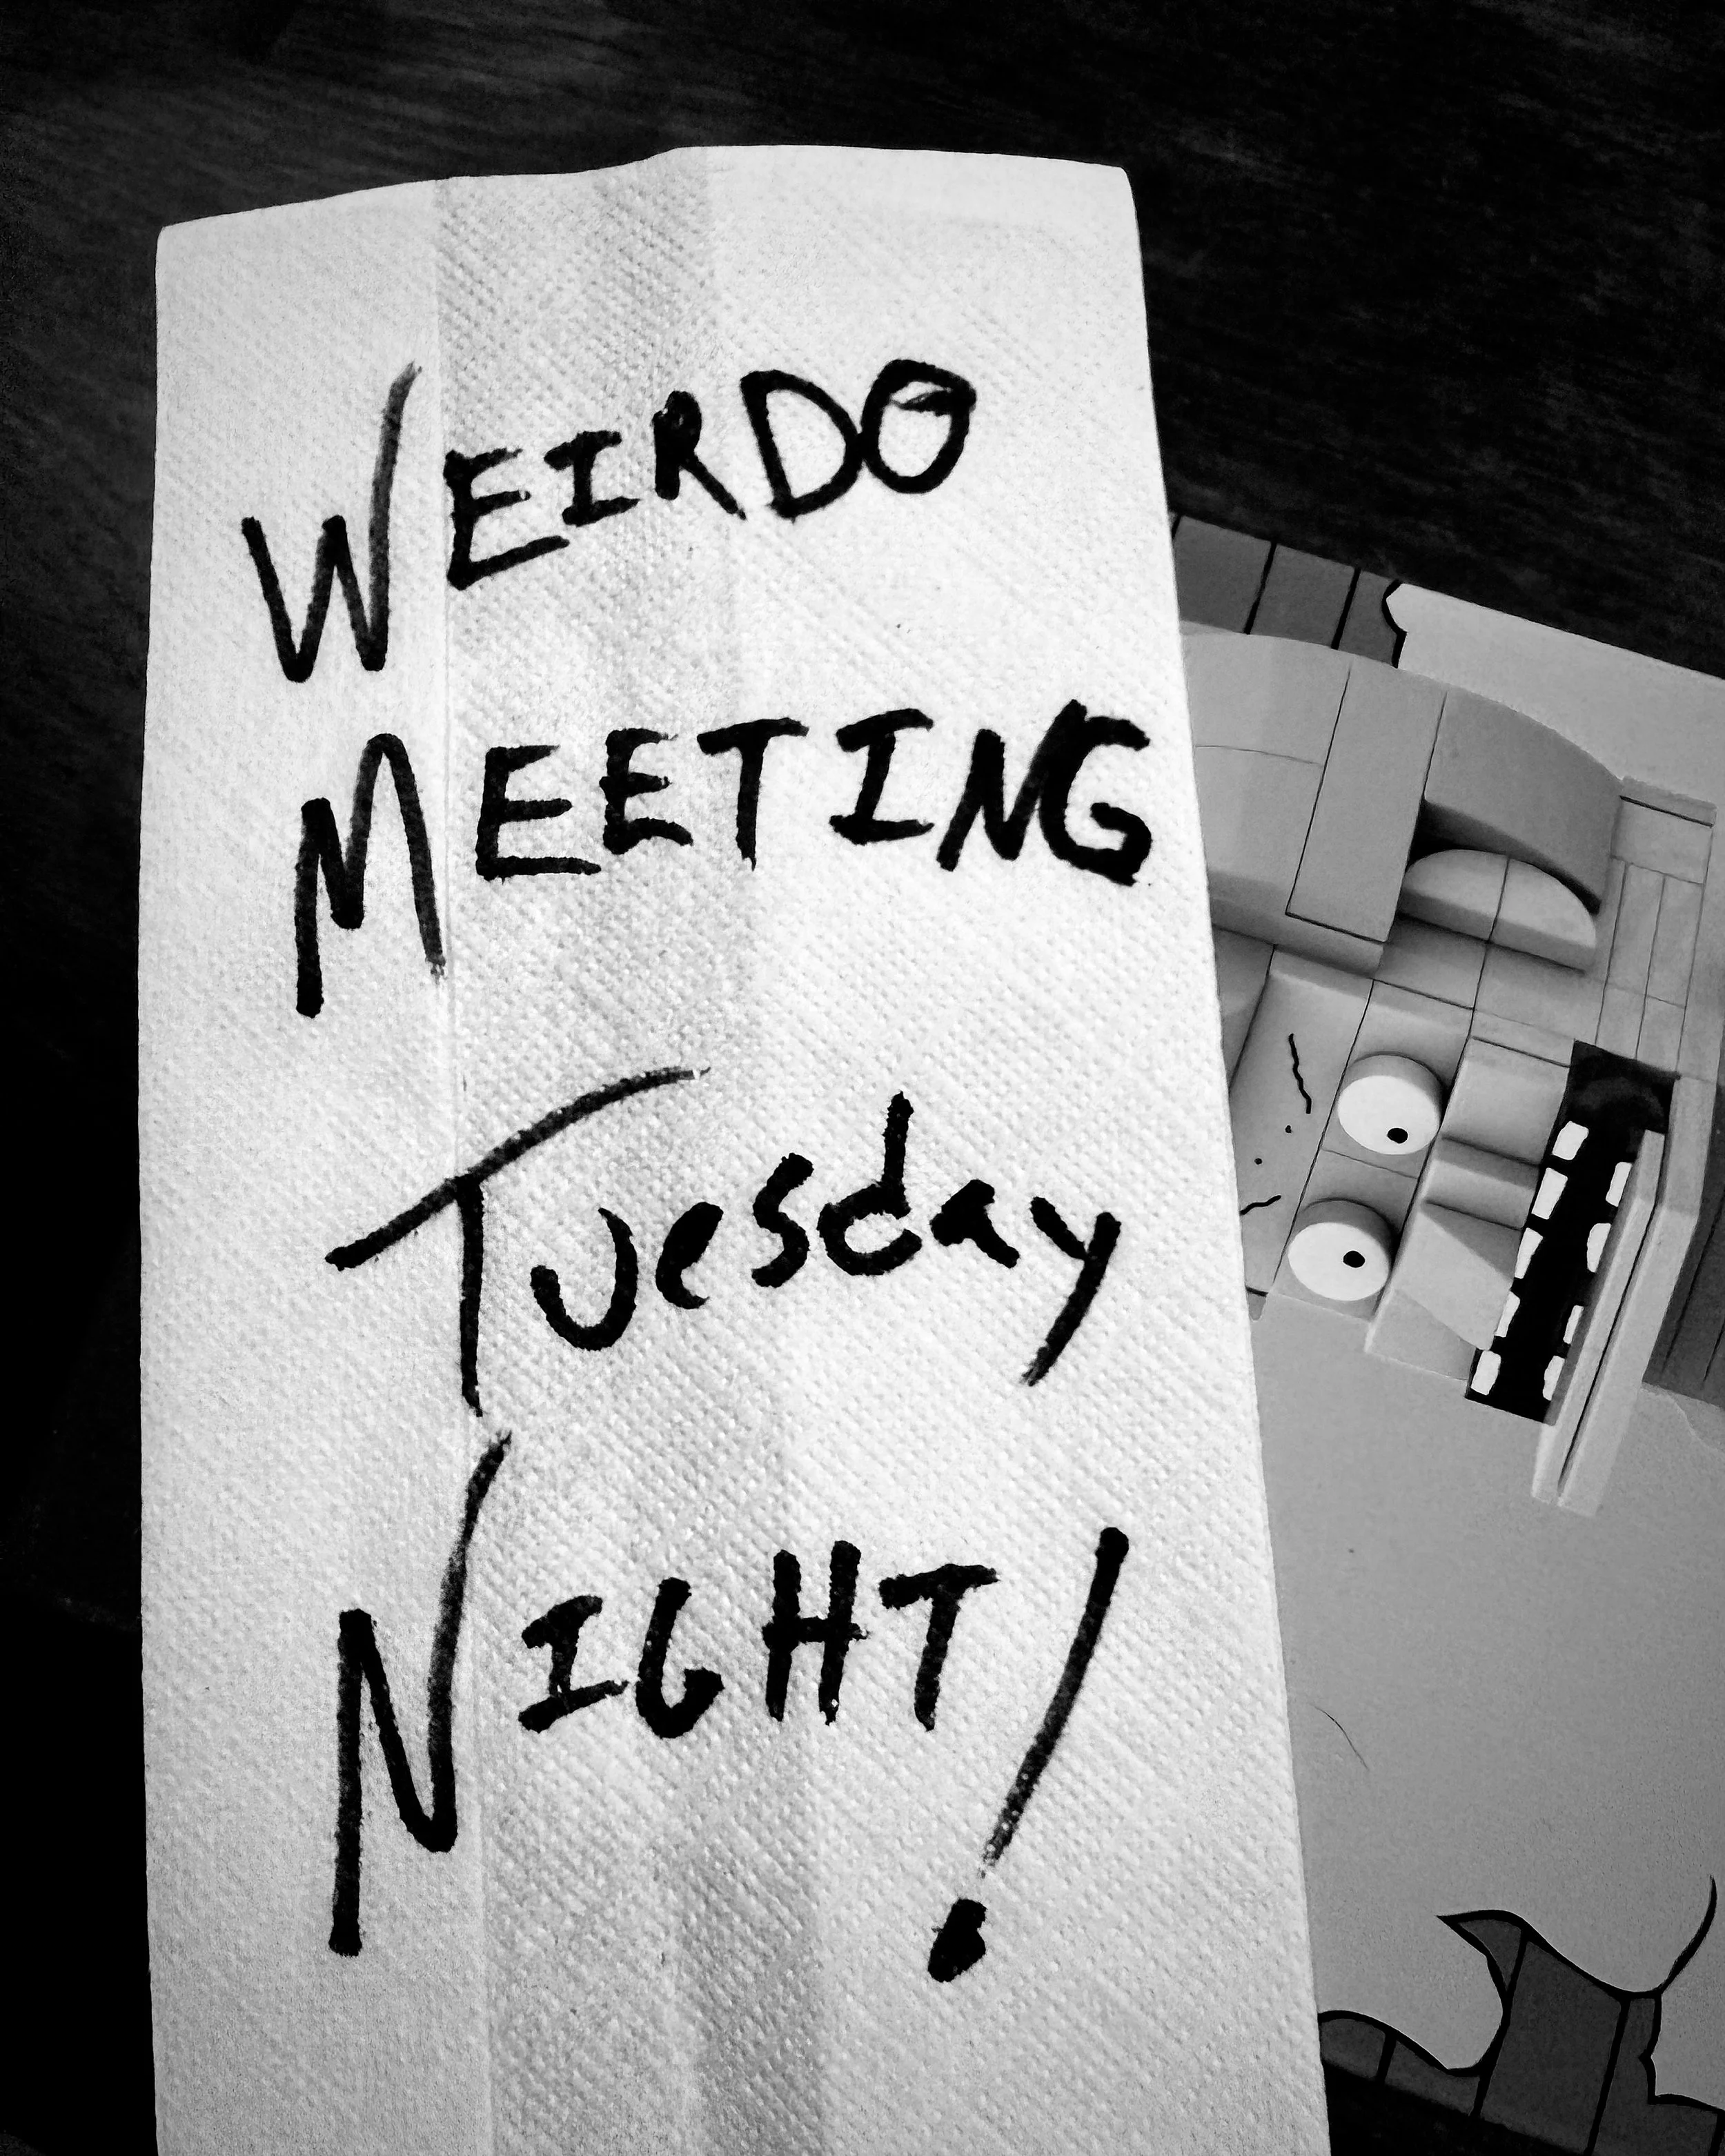 WEIRDO
MEETING
Tuesday
NIGHT!